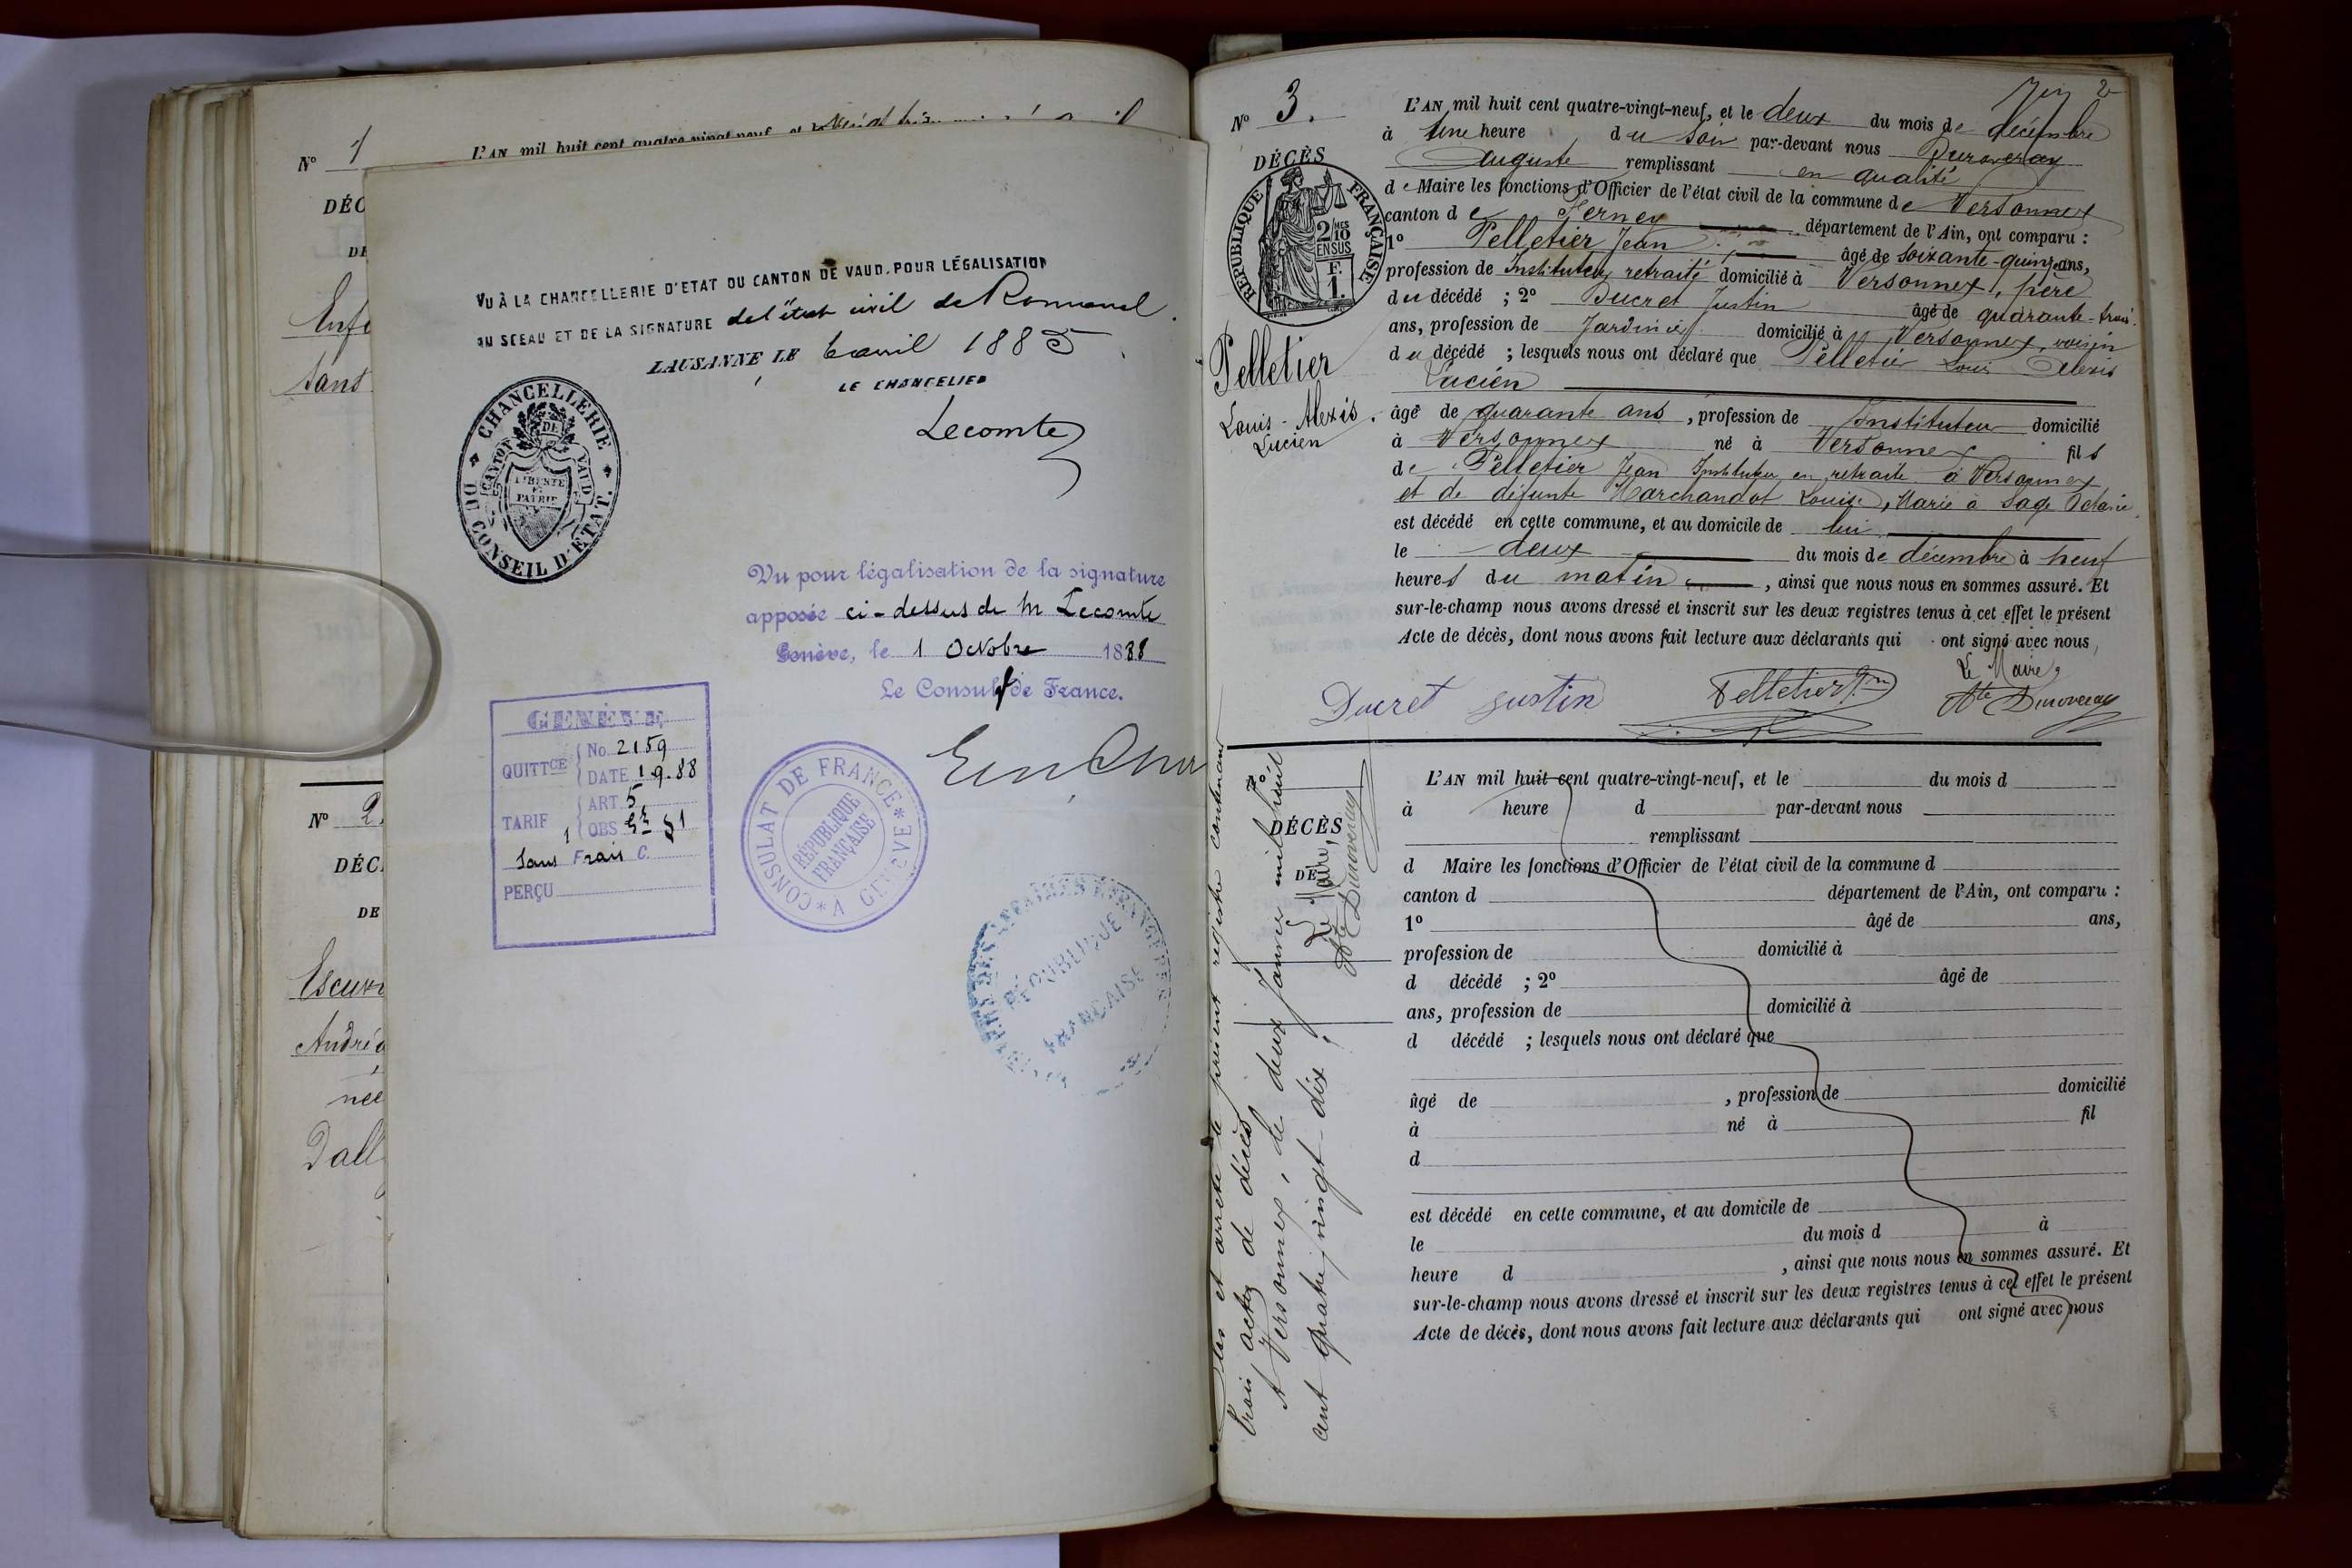 Nº 1
L'AN mil huit cent quatre-vingt-neuf, et le
DÉC
Enfa
sans
Nº 2.
DÉC
DE
Escur
André
née
Dall
VU À LA CHANCELLERIE D'ETAT DU CANTON DE VAUD, POUR LÉGALISATION
AU SCEAU ET DE LA SIGNATURE de l'état civil de Romanel.
LAUSANNE LE 6 avril 1885
LE CHANCELIER
Lecomte
CHANCELLERIE DU CONSEIL D'ÉTAT.
CANTON DE VAUD
LIBERTÉ ET PATRIE
Vu pour légalisation de la signature
apposée ci-dessus de M Lecomte
Genève, le 1 Octobre 1888
Le Consul de France.
GENÈVE
QUITTCE No. 2159
DATE 1.9.88
TARIF ART. 5
OBS §1
Sans Frais C.
PERÇU
CONSULAT DE FRANCE * A GENÈVE *
RÉPUBLIQUE FRANÇAISE
AFFAIRES ETRANGERES
RÉPUBLIQUE
FRANÇAISE
Nº 3.
DÉCÈS
RÉPUBLIQUE FRANÇAISE
2/10 EN SUS
F.
1.
Pelletier
Louis-Alexis.
Lucien
L'AN mil huit cent quatre-vingt-neuf, et le deux du mois de décembre
à Une heure du soir par-devant nous Duroveray
Auguste remplissant en qualité
de Maire les fonctions d'Officier de l'état civil de la commune de Versonnex
canton de Ferney département de l'Ain, ont comparu :
1º Pelletier Jean âgé de soixante-quinze ans,
profession de Instituteur retraité domicilié à Versonnex, père
du décédé ; 2º Ducret Justin âgé de quarante-trois
ans, profession de Jardinier domicilié à Versonnex, voisin
du décédé ; lesquels nous ont déclaré que Pelletier Louis Alexis
Lucien
âgé de quarante ans, profession de Instituteur domicilié
à Versonnex né à Versonnex fils
de Pelletier Jean Instituteur en retraite à Versonnex
et de défunte Marchandot Louise, Marie
est décédé en cette commune, et au domicile de lui
le deux du mois de décembre à neuf
heures du matin, ainsi que nous nous en sommes assuré. Et
sur-le-champ nous avons dressé et inscrit sur les deux registres tenus à cet effet le présent
Acte de décès, dont nous avons fait lecture aux déclarants qui ont signé avec nous,
Le Maire,
Ducret Justin Pelletier Jn Ate Duroveray
Nº
DÉCÈS
DE
L'AN mil huit cent quatre-vingt-neuf, et le du mois d
à heure d par-devant nous
remplissant
d Maire les fonctions d'Officier de l'état civil de la commune d
canton d département de l'Ain, ont comparu :
1º âgé de ans,
profession de domicilié à
d décédé ; 2º âgé de
ans, profession de domicilié à
d décédé ; lesquels nous ont déclaré que
âgé de , profession de domicilié
à né à fil
d
est décédé en cette commune, et au domicile de
le du mois d à
heure d , ainsi que nous nous en sommes assuré. Et
sur-le-champ nous avons dressé et inscrit sur les deux registres tenus à cet effet le présent
Acte de décès, dont nous avons fait lecture aux déclarants qui ont signé avec nous
Clos et arrêté le présent registre contenant
trois actes de décès
A Versonnex, le deux Janvier mil huit
cent quatre-vingt-dix,
Le Maire,
Ate Duroveray